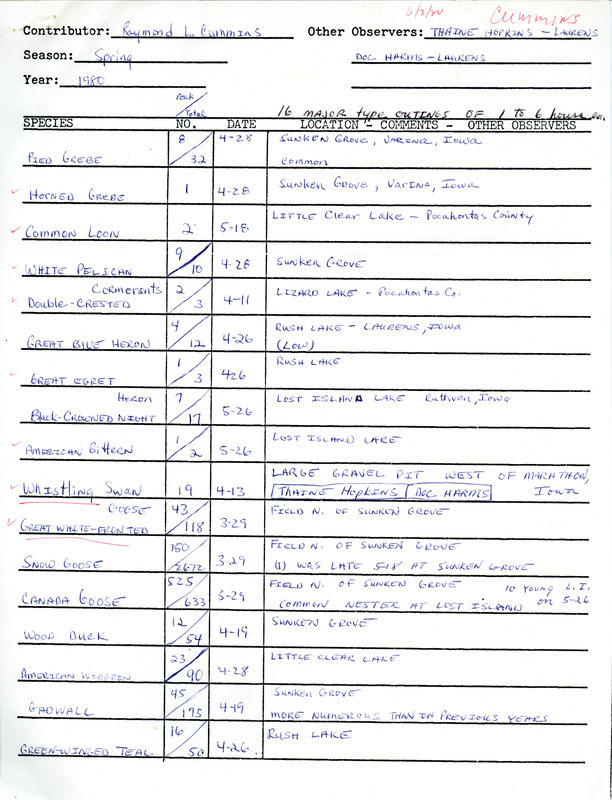 6/3/80 Cummins
Contributor: Raymond L. Cummins Other Observers: THAINE HOPKINS - LAURENS
Season: Spring DOC HARMS - LAURENS
Year: 1980
Peak/Total 16 major type outings of 1 to 6 hours ea.
SPECIES NO. DATE LOCATION - COMMENTS - OTHER OBSERVERS
PIED GREBE 8/32 4-28 SUNKEN GROVE, VARINA, IOWA
common
HORNED GREBE 1 4-28 SUNKEN GROVE, VARINA, IOWA
COMMON LOON 2 5-18 LITTLE CLEAR LAKE - Pocahontas County
WHITE PELICAN 9/10 4-28 SUNKEN GROVE
Cormorants
Double-CRESTED 2/3 4-11 LIZARD LAKE - Pocahontas Co.
GREAT BLUE HERON 4/12 4-26 RUSH LAKE - LAURENS, IOWA
(LOW)
GREAT EGRET 1/3 426 RUSH LAKE
HERON
Black-CROWNED NIGHT 7/17 5-26 LOST ISLAND LAKE Ruthven, Iowa
AMERICAN BITTERN 1/2 5-26 LOST ISLAND LAKE
Whistling Swan 19 4-13 LARGE GRAVEL PIT WEST OF MARATHON,
THAINE HOPKINS DOC HARMS IOWA
GOOSE
GREAT WHITE-FRONTED 43/118 3-29 FIELD N. OF SUNKEN GROVE
SNOW GOOSE 150/2672 3-29 FIELD N. OF SUNKEN GROVE
(1) WAS LATE 5-18 AT SUNKEN GROVE
CANADA GOOSE 525/633 3-29 FIELD N. OF SUNKEN GROVE 10 YOUNG L.I.
COMMON NESTER AT LOST ISLAND on 5-26
WOOD DUCK 12/54 4-19 SUNKEN GROVE
AMERICAN WIDGEON 23/90 4-28 LITTLE CLEAR LAKE
GADWALL 45/175 4-19 SUNKEN GROVE
MORE NUMEROUS THAN IN PREVIOUS YEARS
GREEN-WINGED TEAL 16/50 4-26 RUSH LAKE